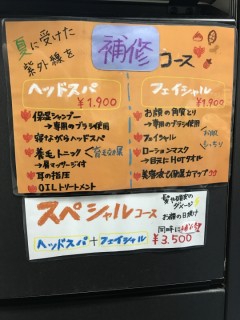 夏に受けた
紫外線を
補修コース
ヘッドスパ
¥1,900
保湿シャンプー
→専用のブラシ使用
寝ながらヘッドスパ
養毛トニック
→肩マッサージ付
耳の指圧
OILトリートメント
フェイシャル
¥1,900
お顔の角質とり
→専用のブラシ使用
フェイシャル
ローションマスク
→目元にHotタオル
美容液で保湿力アップ
スペシャルコース
髪や頭皮の
ダメージ
お顔の日焼け
同時に補修
ヘッドスパ+フェイシャル
¥3,500